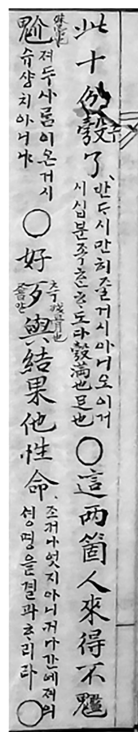 此十分彀了 반드시만히준거시아니오이거 시십분죡ᄒᆞ도다彀滿也足也 ○ 這两箇人來得不尷
尬 져두사ᄅᆞᆷ이온거시 슈샹치아니냐 ○ 好歹與結果他性命 조커나엇지아니커나간에져의 셩명을결과ᄒᆞ리라 ○